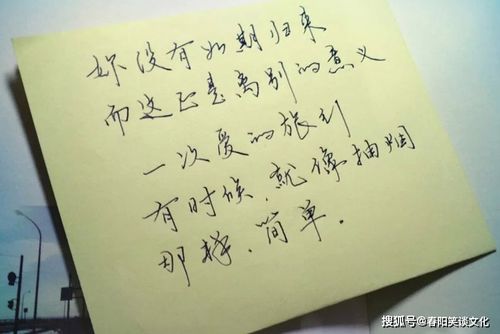 妳没有如期归来
而这正是离别的意义
一次爱的旅行
有时候,就像抽烟
那样、简单.
搜狐号@春阳笑谈文化